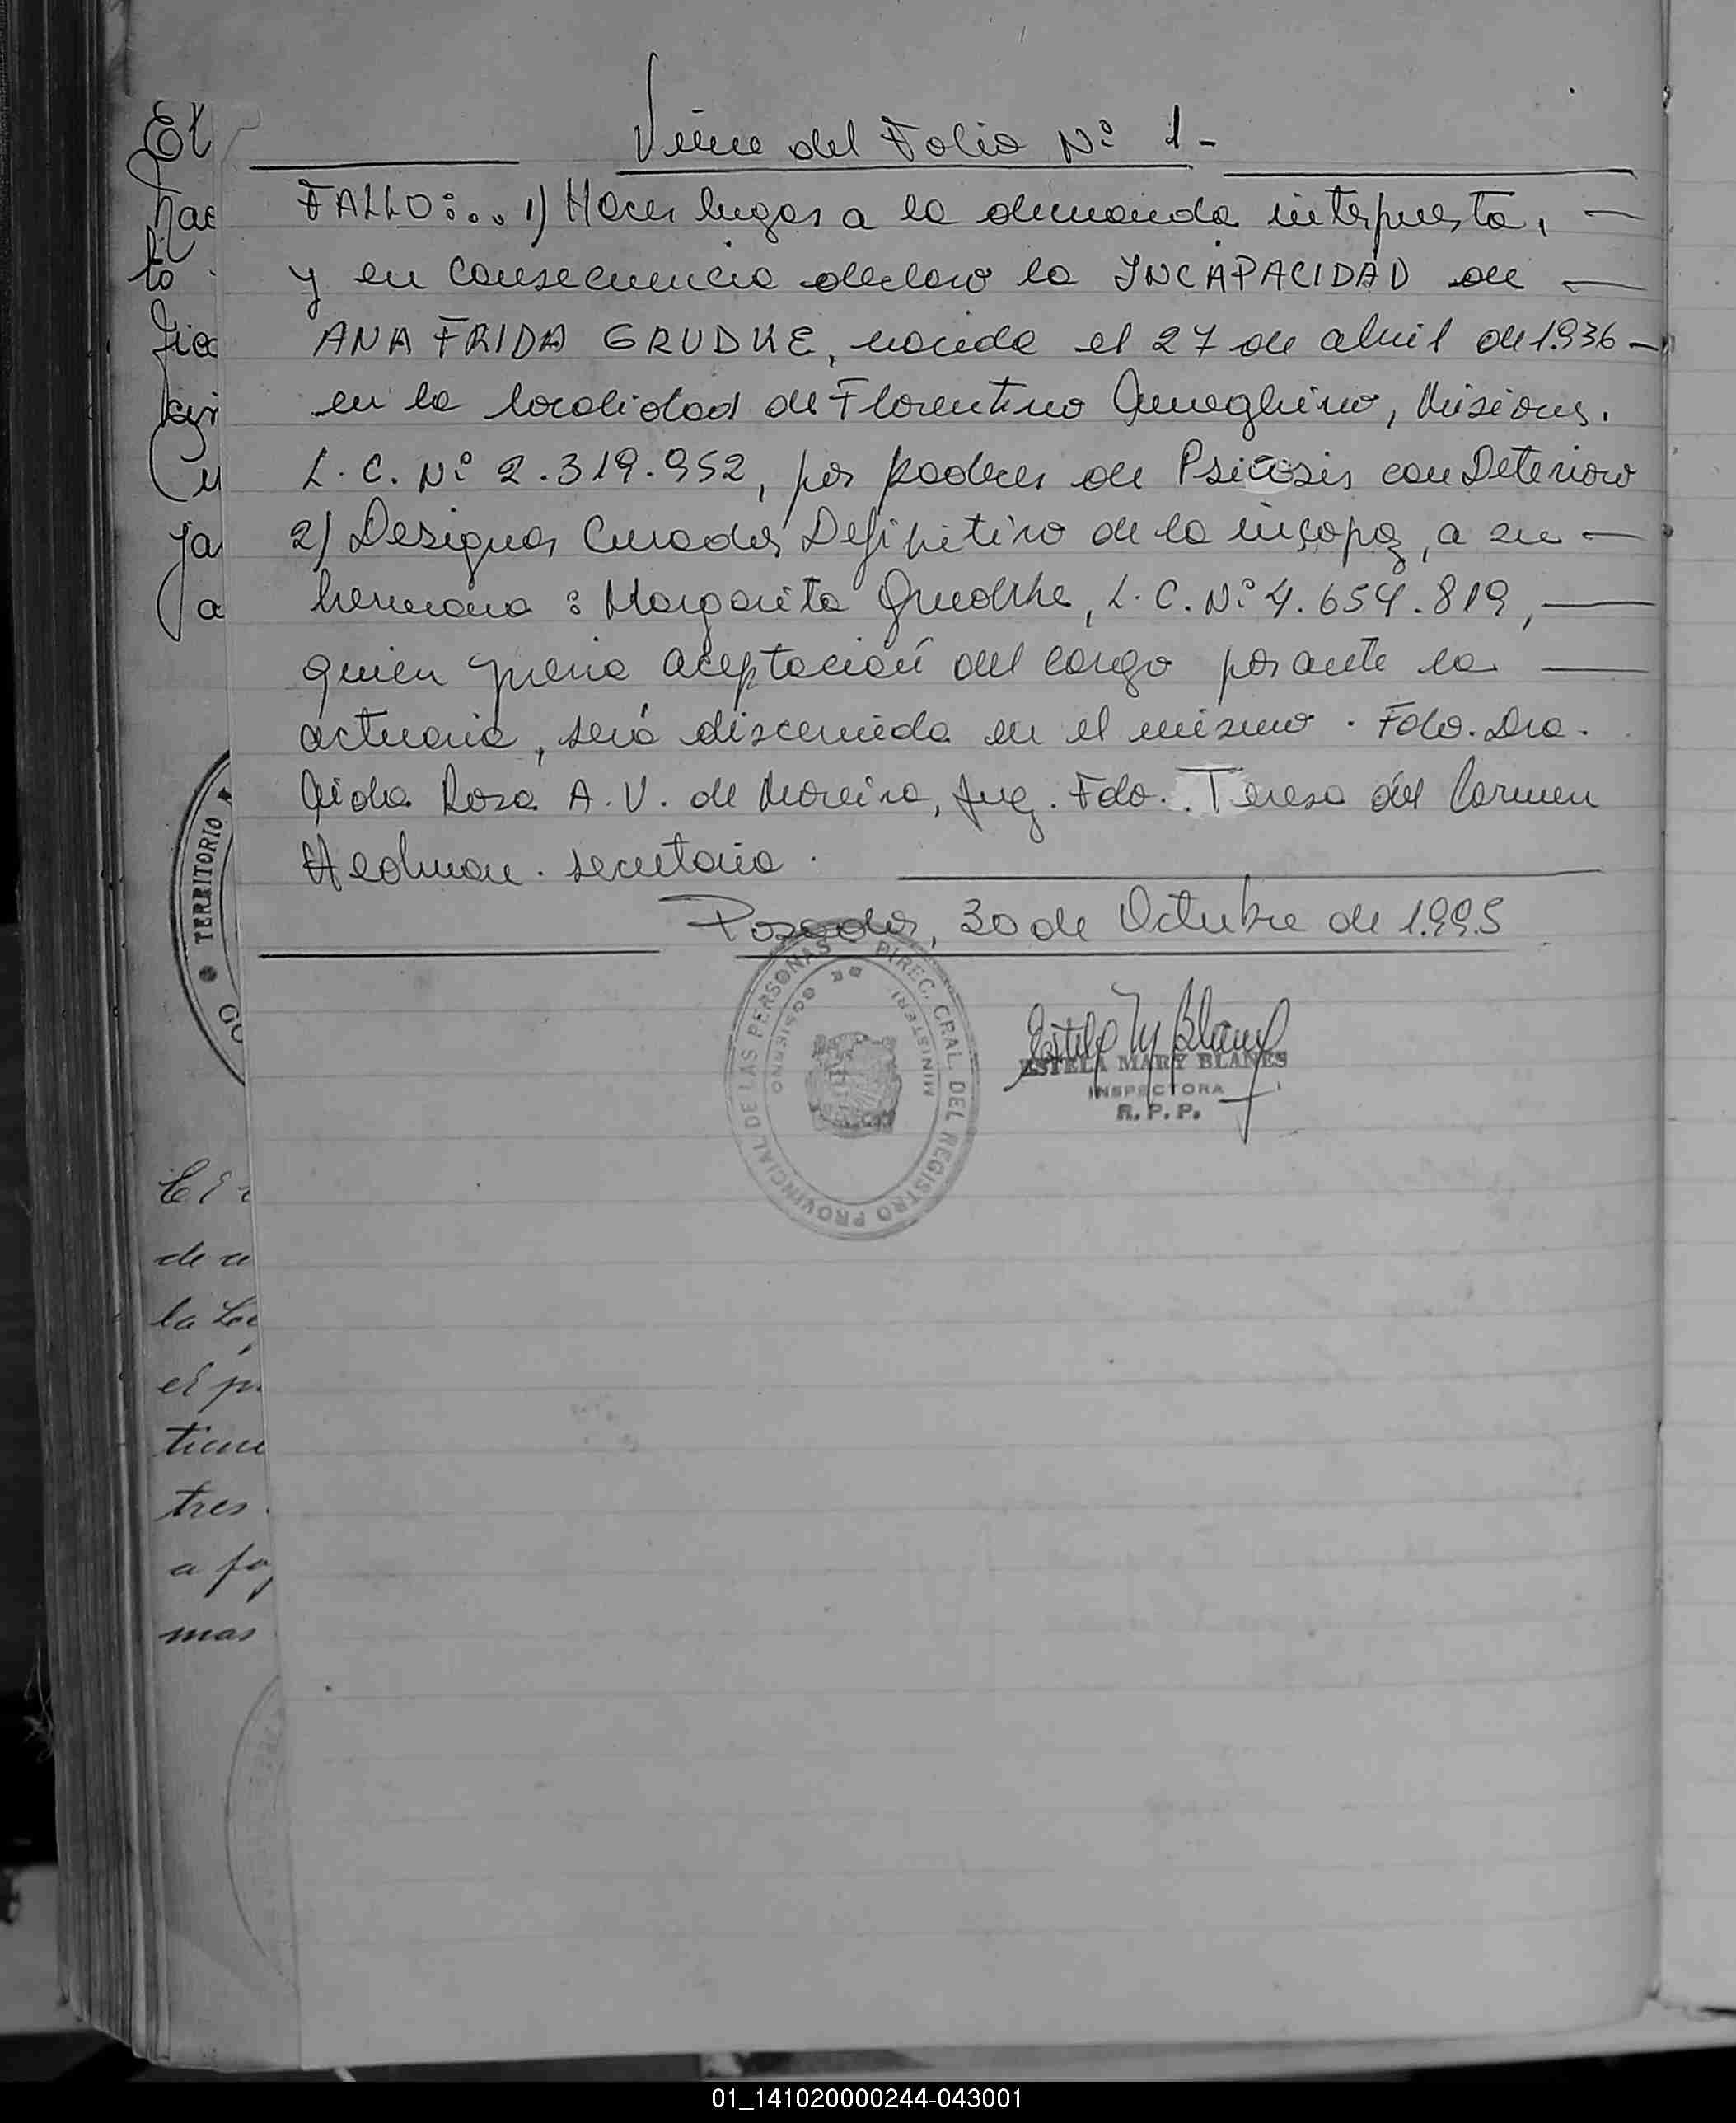 Viene del Folio Nº 1-
FALLO:.. 1) Hacer lugar a la demanda interpuesta,
y en consecuencia declaro la INCAPACIDAD de
ANA FRIDA GRUDKE, nacida el 27 de abril de 1.936
en la localidad de Florentino Ameghino, Misiones.
L.C. Nº 2.319.952, por padecer de Psicosis con Deterioro
2) Designar Curador Definitivo de la incapaz, a su
hermana: Margarita Grudke, L.C. Nº 4.654.819,
quien previa aceptación del cargo por ante la
actuaria, será discernida en el mismo. Fdo. Dra.
Aida Rosa A. V. de Moreira, Juez. Fdo. Teresa del Carmen
Hedman. secretaria.
Posadas, 30 de Octubre de 1.995
DIREC. GRAL. DEL REGISTRO PROVINCIAL DE LAS PERSONAS
GOBIERNO
MINISTERI
ESTELA MARY BLANES
INSPECTORA
R.P.P.
El
hac
to
Ja
a
TERRITORIO
GO
de a
la
el
tres
a
mas
01_141020000244-043001